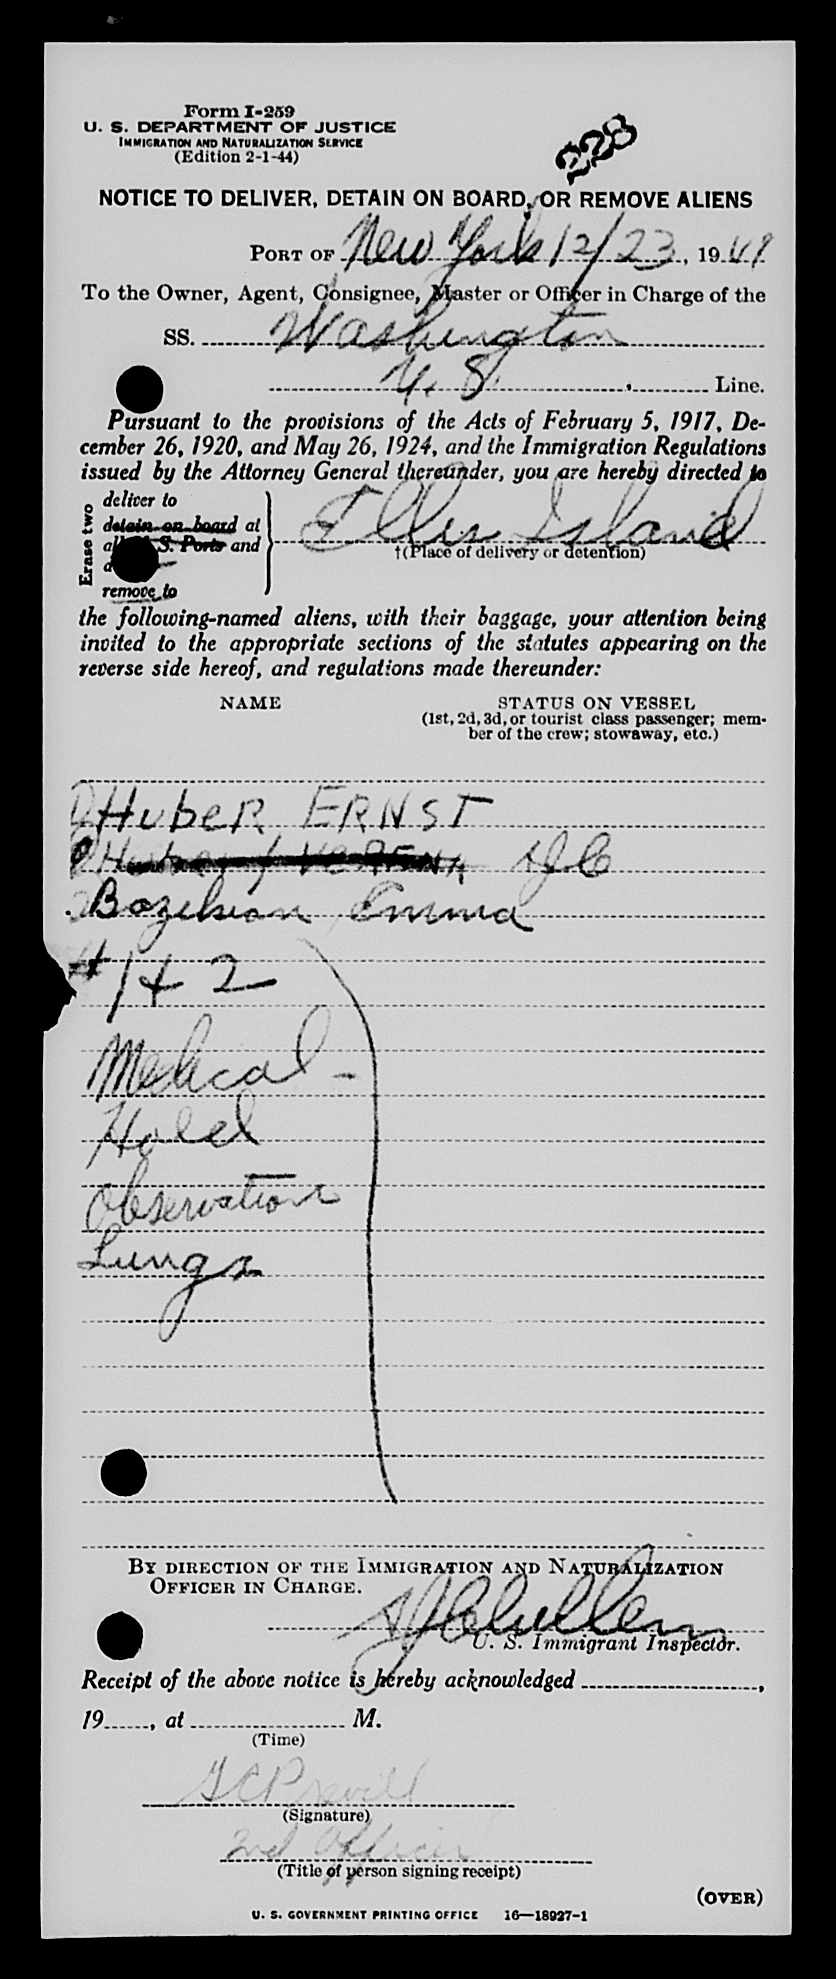 Form I-259
U. S. DEPARTMENT OF JUSTICE
IMMIGRATION AND NATURALIZATION SERVICE
(Edition 2-1-44)
228
NOTICE TO DELIVER, DETAIN ON BOARD, OR REMOVE ALIENS
PORT OF New York 12/23, 19
To the Owner, Agent, Consignee, Master or Officer in Charge of the
SS. Washington
U. S. Line.
Pursuant to the provisions of the Acts of February 5, 1917, De-
cember 26, 1920, and May 26, 1924, and the Immigration Regulations
issued by the Attorney General thereunder, you are hereby directed to
Erase two
deliver to
detain on board at
S. Ports and
remove to
Ellis Island
†(Place of delivery or detention)
the following-named aliens, with their baggage, your attention being
invited to the appropriate sections of the statutes appearing on the
reverse side hereof, and regulations made thereunder:
NAME STATUS ON VESSEL
(1st, 2d, 3d, or tourist class passenger; mem-
ber of the crew; stowaway, etc.)
HubeR ERNST
VERENA SJC
Emma
# 1 + 2
Medical -
Hold
Observation
Lungs
BY DIRECTION OF THE IMMIGRATION AND NATURALIZATION
OFFICER IN CHARGE.
U. S. Immigrant Inspector.
Receipt of the above notice is hereby acknowledged ,
19 , at M.
(Time)
(Signature)
2nd Officer
(Title of person signing receipt)
(OVER)
U. S. GOVERNMENT PRINTING OFFICE 16—18927-1